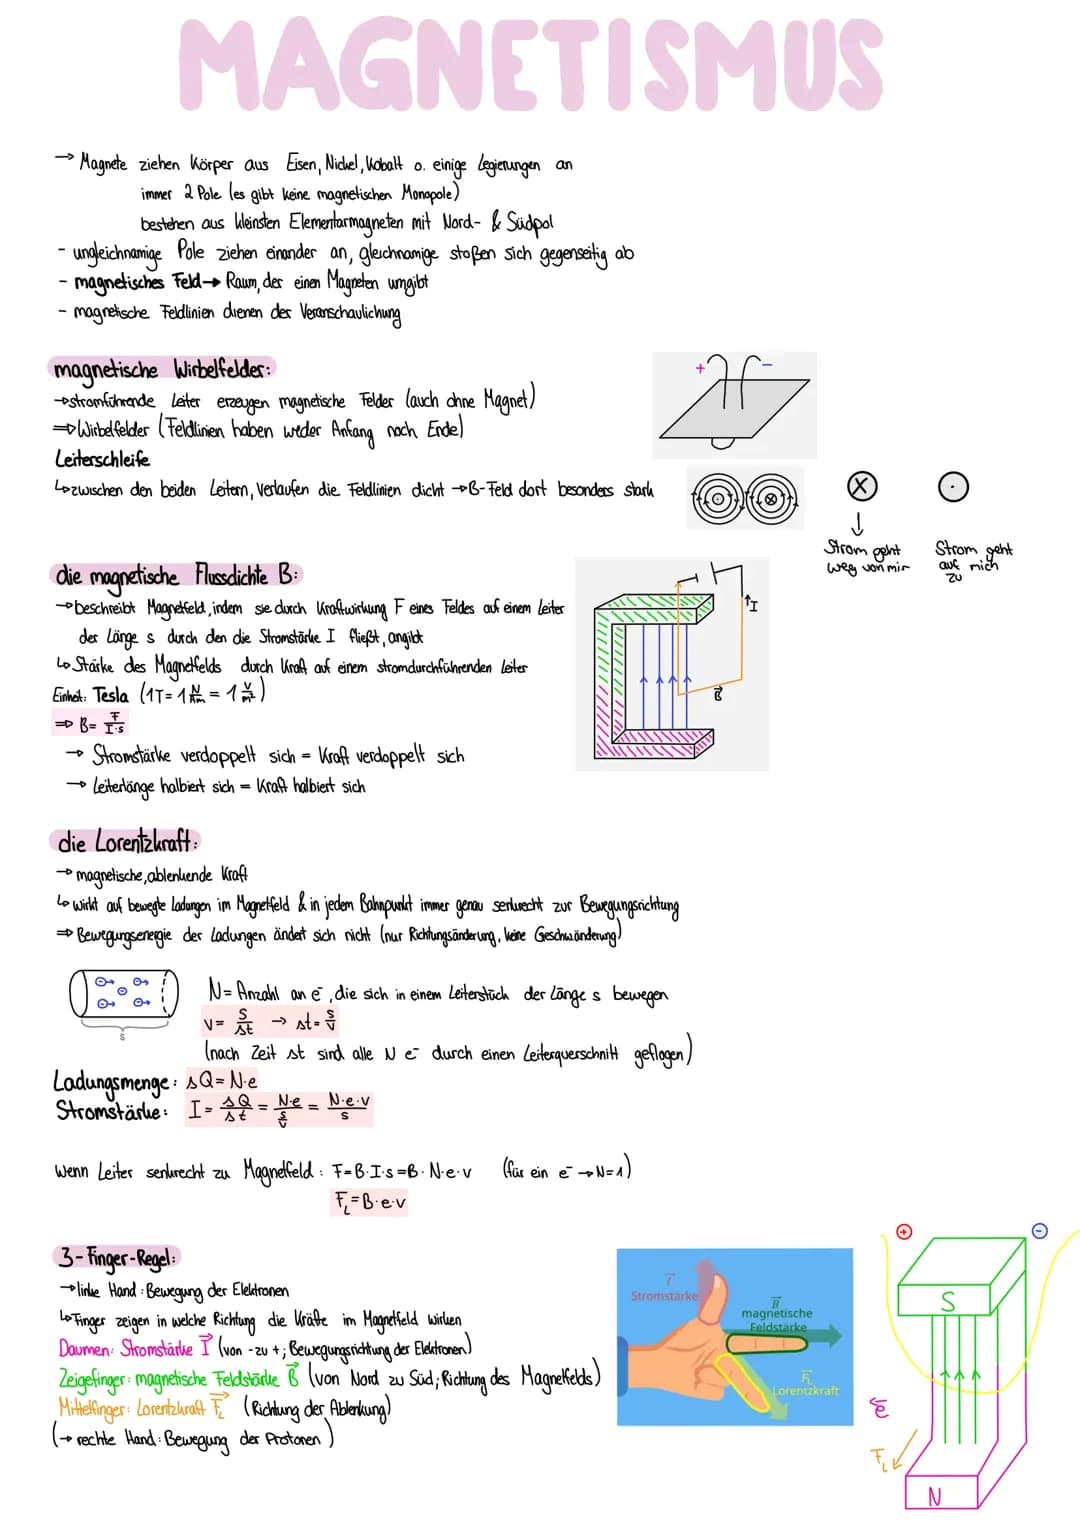 MAGNETISMUS
→ Magnete ziehen Körper aus Eisen, Nickel, Kobalt o. einige Legierungen an
immer 2 Pole (es gibt keine magnetischen Monopole)
bestehen aus kleinsten Elementarmagneten mit Nord- & Südpol
- ungleichnamige Pole ziehen einander an, gleichnamige stoßen sich gegenseitig ab
- magnetisches Feld → Raum, der einen Magneten umgibt
- magnetische Feldlinien dienen der Veranschaulichung
magnetische Wirbelfelder:
→ stromführende Leiter erzeugen magnetische Felder (auch ohne Magnet)
⇒ Wirbelfelder (Feldlinien haben weder Anfang noch Ende)
Leiterschleife
↳ zwischen den beiden Leitern, verlaufen die Feldlinien dicht → B-Feld dort besonders stark
+ -
Strom geht weg von mir
Strom geht auf mich zu
die magnetische Flussdichte B:
→ beschreibt Magnetfeld, indem sie durch Kraftwirkung F eines Feldes auf einem Leiter
der Länge s durch den die Stromstärke I fließt, angibt
↳ Stärke des Magnetfelds durch Kraft auf einem stromdurchführenden Leiter
Einheit: Tesla (1T = 1 N/Am = 1 V/m²)
⇒ B = F/I·s
→ Stromstärke verdoppelt sich = Kraft verdoppelt sich
→ Leiterlänge halbiert sich = Kraft halbiert sich
↑I
B
die Lorentzkraft:
→ magnetische, ablenkende Kraft
↳ wirkt auf bewegte Ladungen im Magnetfeld & in jedem Bahnpunkt immer genau senkrecht zur Bewegungsrichtung
⇒ Bewegungsenergie der Ladungen ändert sich nicht (nur Richtungsänderung, keine Geschwänderung)
s
N = Anzahl an e⁻, die sich in einem Leiterstück der Länge s bewegen
v = s/Δt → Δt = s/v
(nach Zeit Δt sind alle N e⁻ durch einen Leiterquerschnitt geflogen)
Ladungsmenge: ΔQ = N·e
Stromstärke: I = ΔQ/Δt = N·e/(s/v) = N·e·v/s
wenn Leiter senkrecht zu Magnetfeld: F = B·I·s = B·N·e·v (für ein e⁻ → N=1)
F_L = B·e·v
3-Finger-Regel:
→ linke Hand: Bewegung der Elektronen
↳ Finger zeigen in welche Richtung die Kräfte im Magnetfeld wirken
Daumen: Stromstärke I⃗ (von - zu +; Bewegungsrichtung der Elektronen)
Zeigefinger: magnetische Feldstärke B⃗ (von Nord zu Süd; Richtung des Magnetfelds)
Mittelfinger: Lorentzkraft F⃗_L (Richtung der Ablenkung)
(→ rechte Hand: Bewegung der Protonen)
I⃗
Stromstärke
B⃗
magnetische
Feldstärke
F⃗_L
Lorentzkraft
+ -
S
e⁻
F_L
N